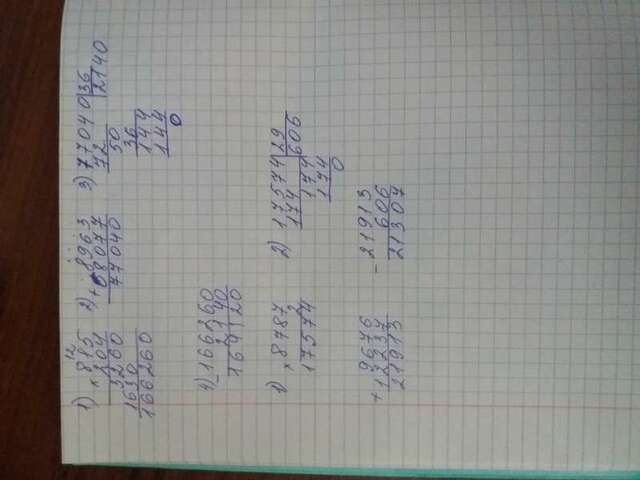 12
1) 815
× 204
3260
1630
166260
2) 8963
+ 68077
77040
3) 77040 36
72 2140
50
36
144
144
0
4) 166260
- 2140
164120
1) 8787
× 2
17574
2) 17574 29
174 606
174
174
0
9676
+ 12237
21913
- 21913
606
21307